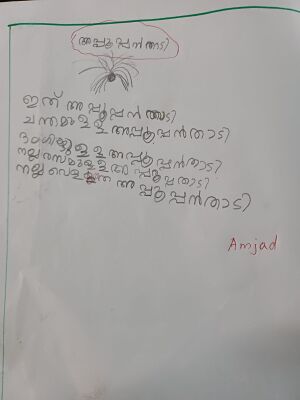 അപ്പൂപ്പൻതാടി
ഇത് അപ്പൂപ്പൻ താടി
ചന്തമുള്ള അപ്പൂപ്പൻതാടി
ഭംഗിയുള്ള അപ്പൂപ്പൻതാടി
നല്ല രസമുള്ള അപ്പൂപ്പതാടി
നല്ല വെളുത്ത അപ്പൂപ്പൻതാടി
Amjad